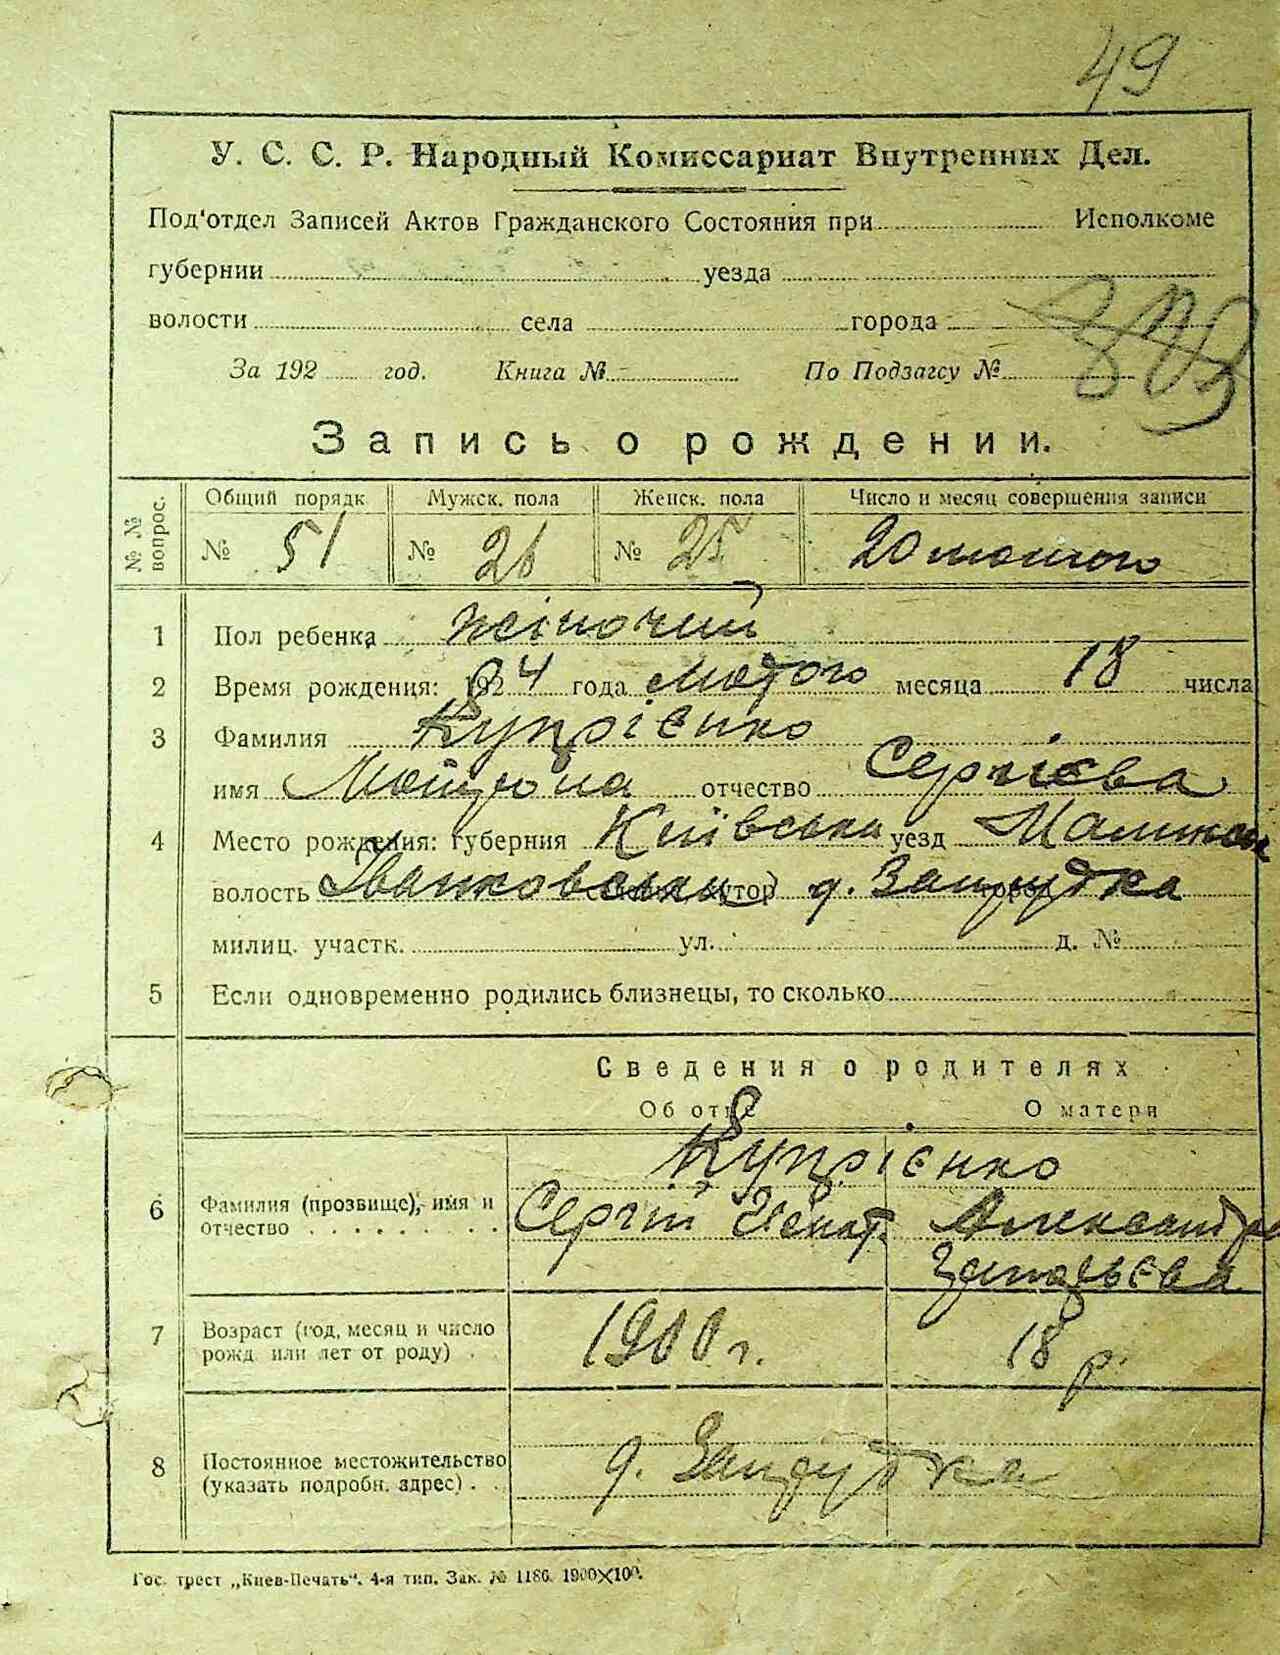 49
У. С. С. Р. Народный Комиссариат Внутренних Дел.
Под'отдел Записей Актов Гражданского Состояния при Исполкоме
губернии уезда
волости села города
За 192 год. Книга № По Подзагсу №
Запись о рождении.
№ № вопрос. Общий порядк. Мужск. пола Женск. пола Число и месяц совершения записи
№ 51 № 26 № 25 20 лютого
1 Пол ребенка жіночий
2 Время рождения: 1924 года лютого месяца 18 числа
3 Фамилия Купрієнко
имя Мотрона отчество Сергієва
4 Место рождения: губерния Київська уезд
волость Іванковська д. Запрудка
милиц. участк. ул. д. №
5 Если одновременно родились близнецы, то сколько
Сведения о родителях
Об отце О матери
Купрієнко
6 Фамилия (прозвище), имя и отчество Сергій Игнат. Александра
7 Возраст (год, месяц и число рожд. или лет от роду) 1900 г. 18 р.
8 Постоянное местожительство (указать подробн. адрес) д. Запрудка
Гос. трест „Киев-Печать“. 4-я тип. Зак. № 1186. 1900×100.